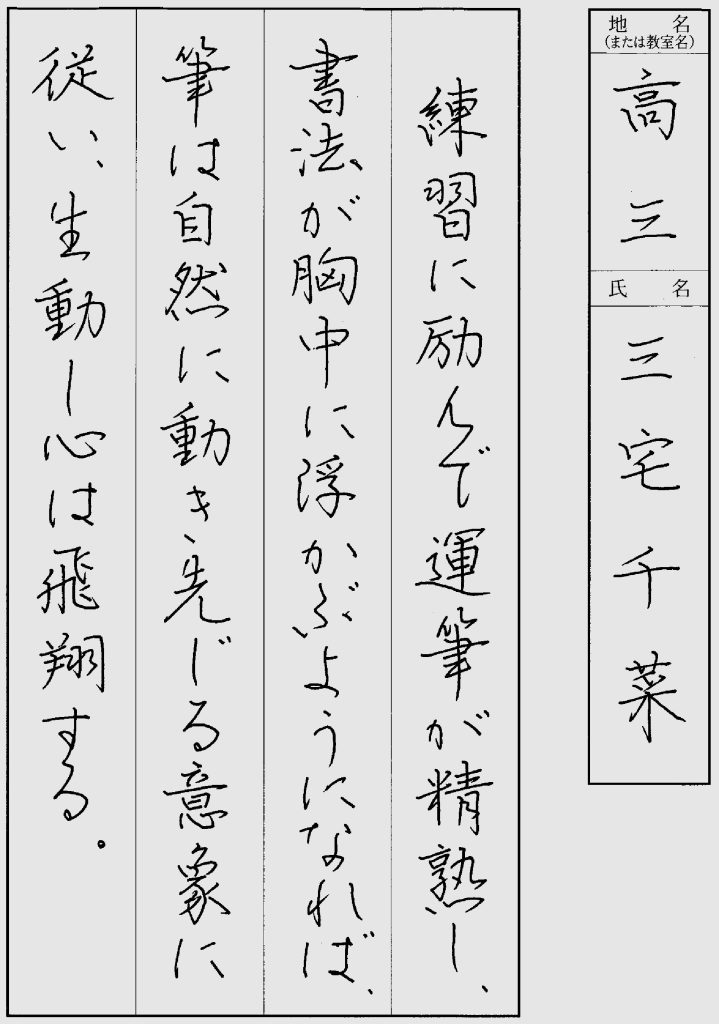 地名
(または教室名)
高三
氏名
三宅千菜
練習に励んで運筆が精熟し、
書法が胸中に浮かぶようになれば、
筆は自然に動き、先じる意象に
従い、生動し心は飛翔する。